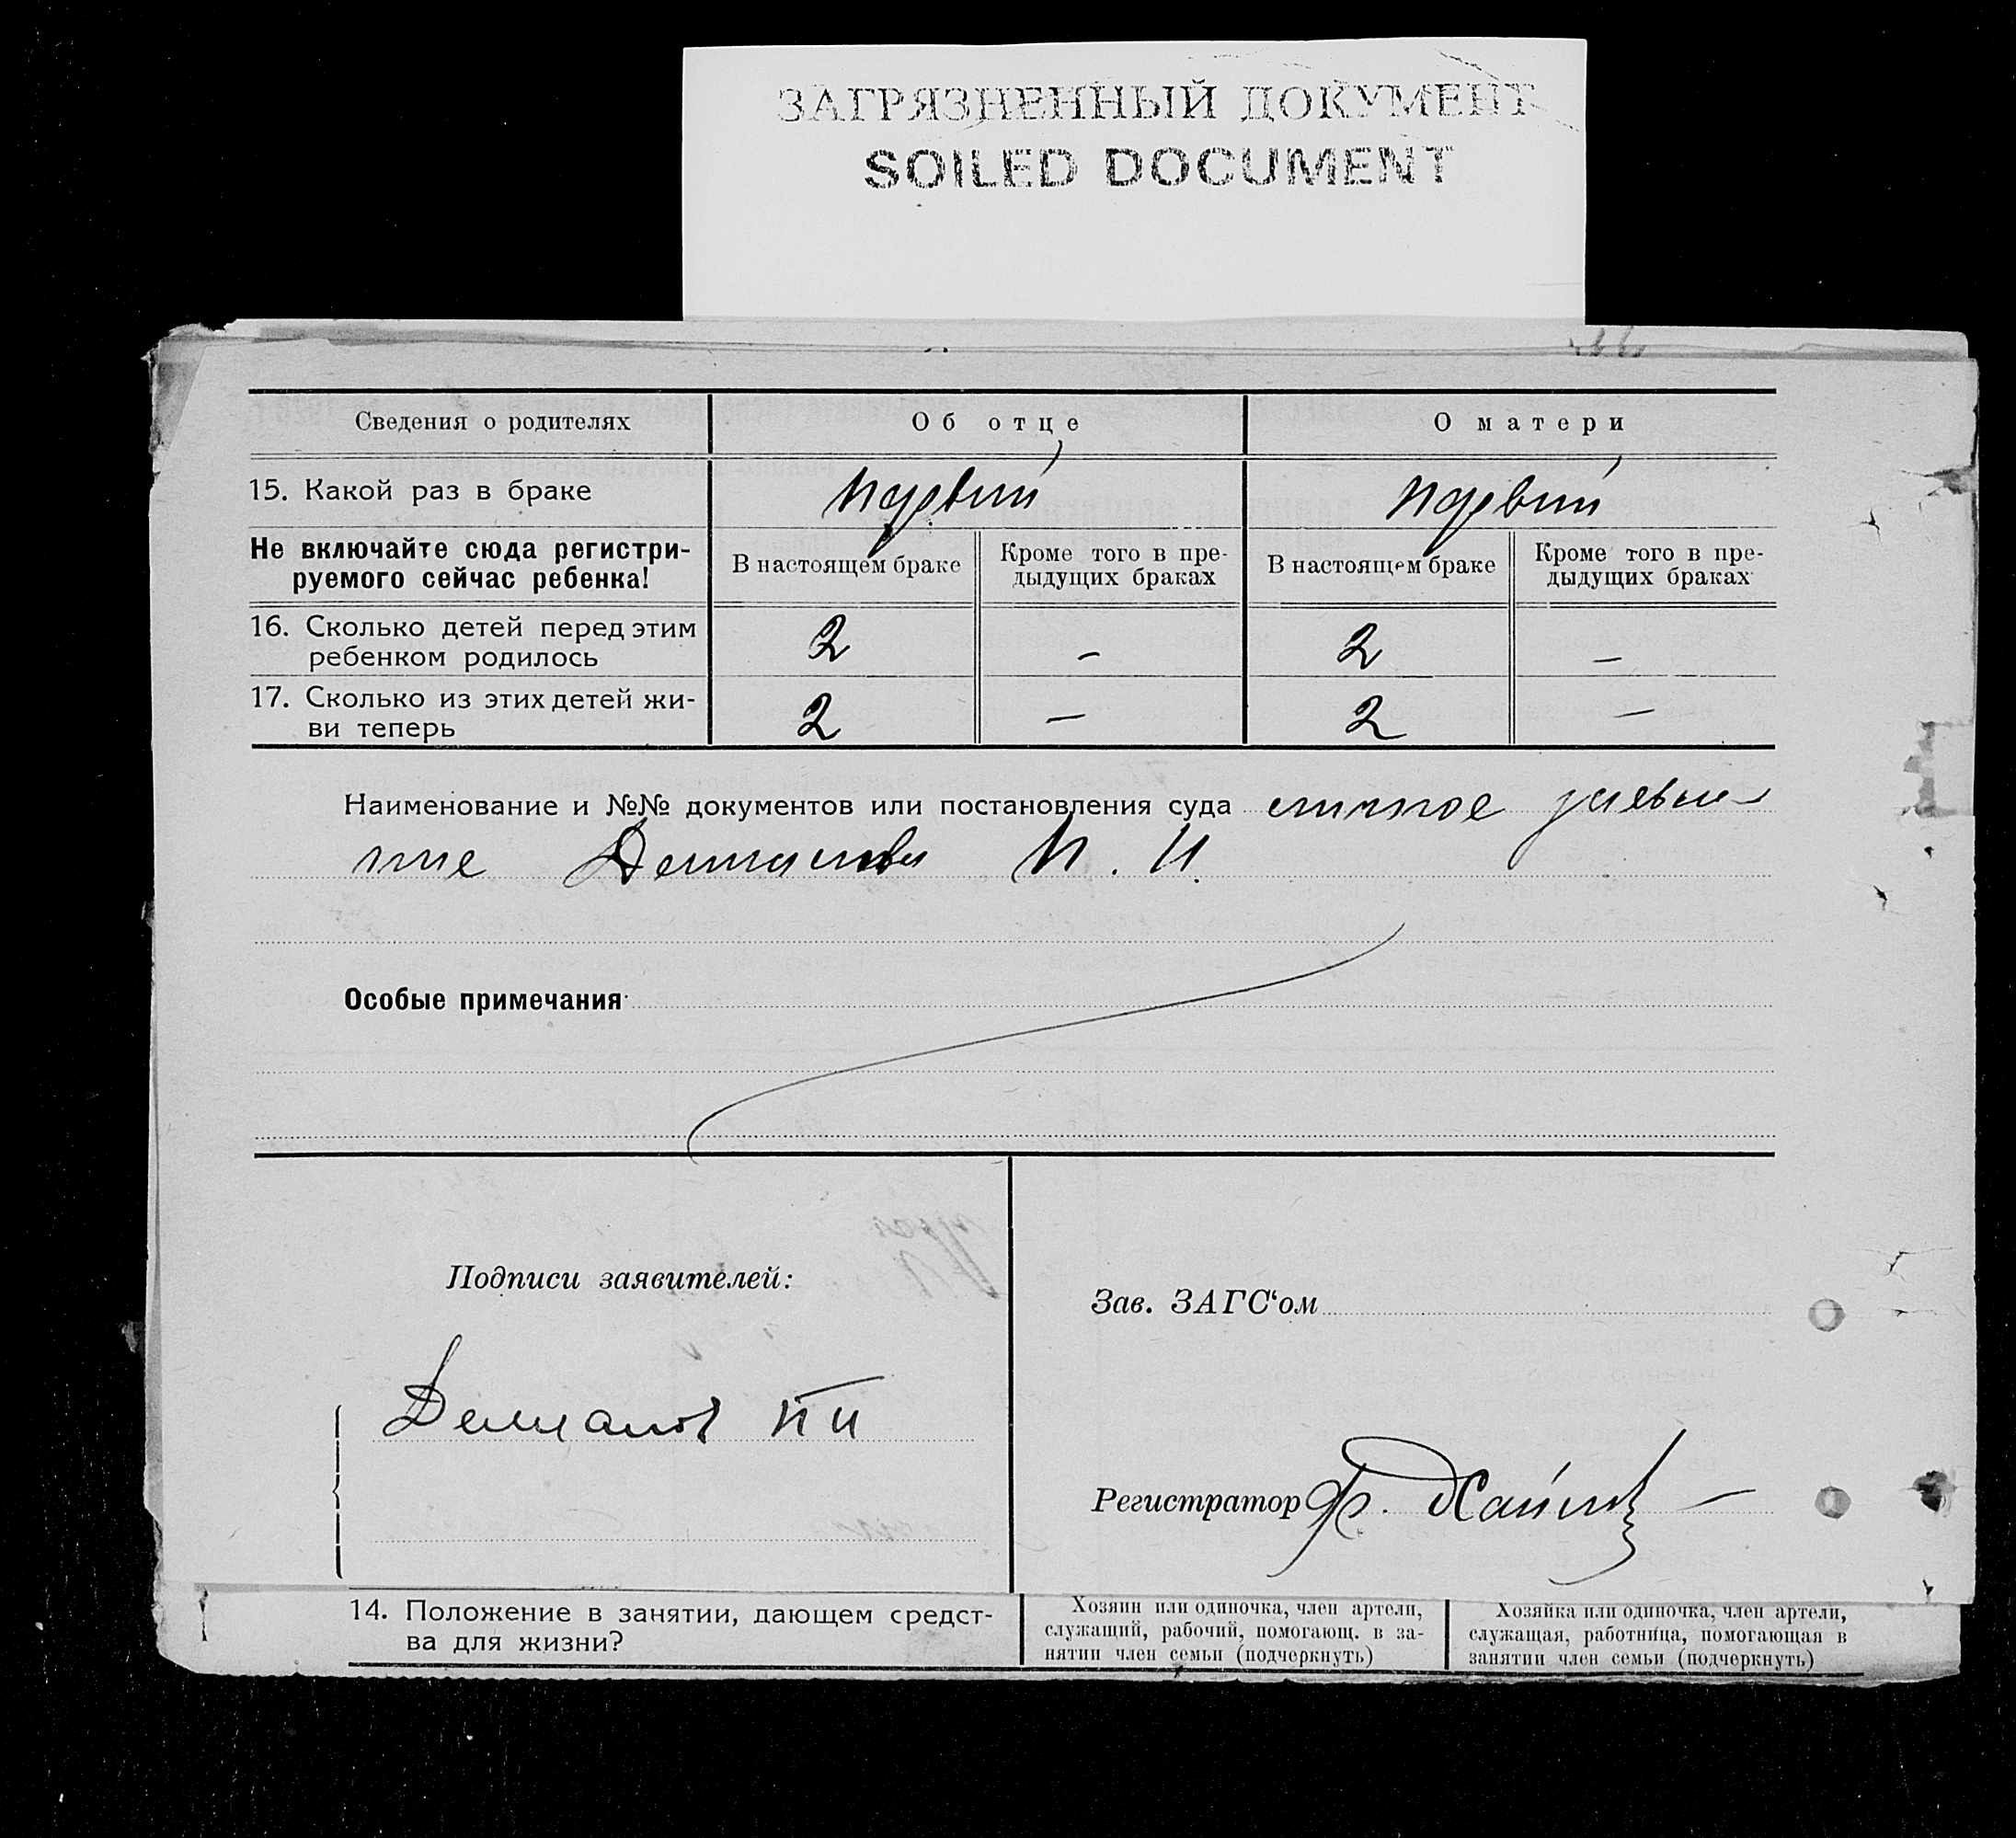 ЗАГРЯЗНЕННЫЙ ДОКУМЕНТ
SOILED DOCUMENT
Сведения о родителях Об отце О матери
15. Какой раз в браке первый первый
Не включайте сюда регистри-
руемого сейчас ребенка!
В настоящем браке
Кроме того в пре-
дыдущих браках
В настоящем браке
Кроме того в пре-
дыдущих браках
16. Сколько детей перед этим
ребенком родилось
2 – 2 –
17. Сколько из этих детей жи-
ви теперь
2 – 2 –
Наименование и №№ документов или постановления суда личное заявле-
ние П. И.
Особые примечания
Подписи заявителей:
П И
Зав. ЗАГС‘ом
Регистратор
14. Положение в занятии, дающем средст-
ва для жизни?
Хозяин или одиночка, член артели,
служащий, рабочий, помогающ. в за-
нятии член семьи (подчеркнуть)
Хозяйка или одиночка, член артели,
служащая, работница, помогающая в
занятии член семьи (подчеркнуть)